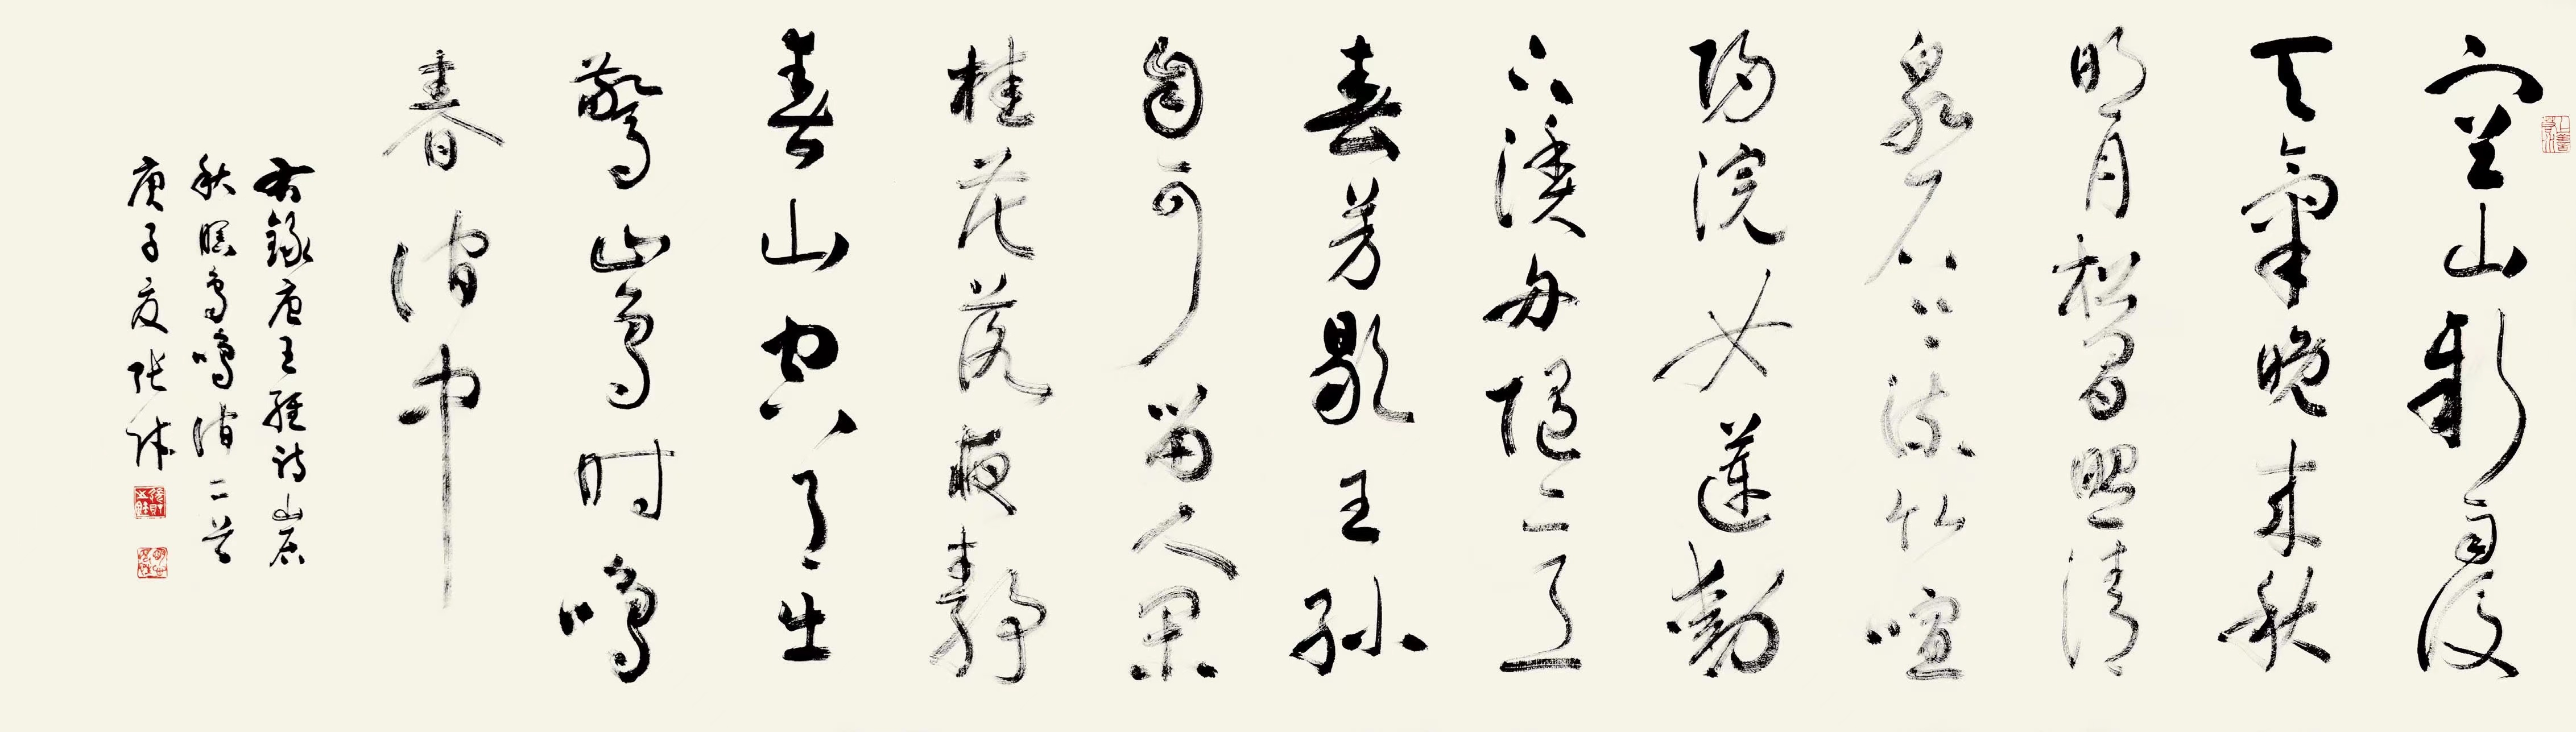 空山新雨後
天氣晚来秋
明月松間照清
泉石上流竹喧
歸浣女蓮動
下漁舟隨意
春芳歇王孫
自可留人閑
桂花落夜靜
春山空月出
驚山鳥时鳴
春澗中
右錄唐王維詩山居
秋暝鳥鳴澗二首
庚子夏张